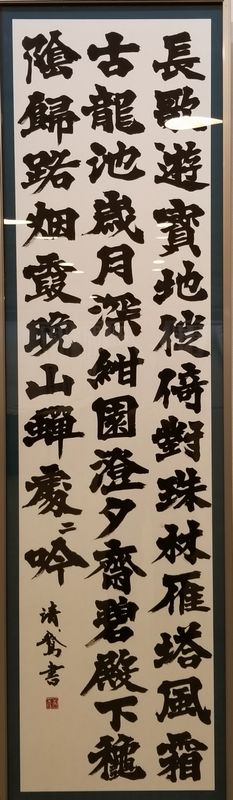 長歌遊寶地徙倚對珠林雁塔風霜
古龍池歲月深紺園澄夕齋碧殿下穐
陰歸路烟霞晚山蟬處〻吟
清 書